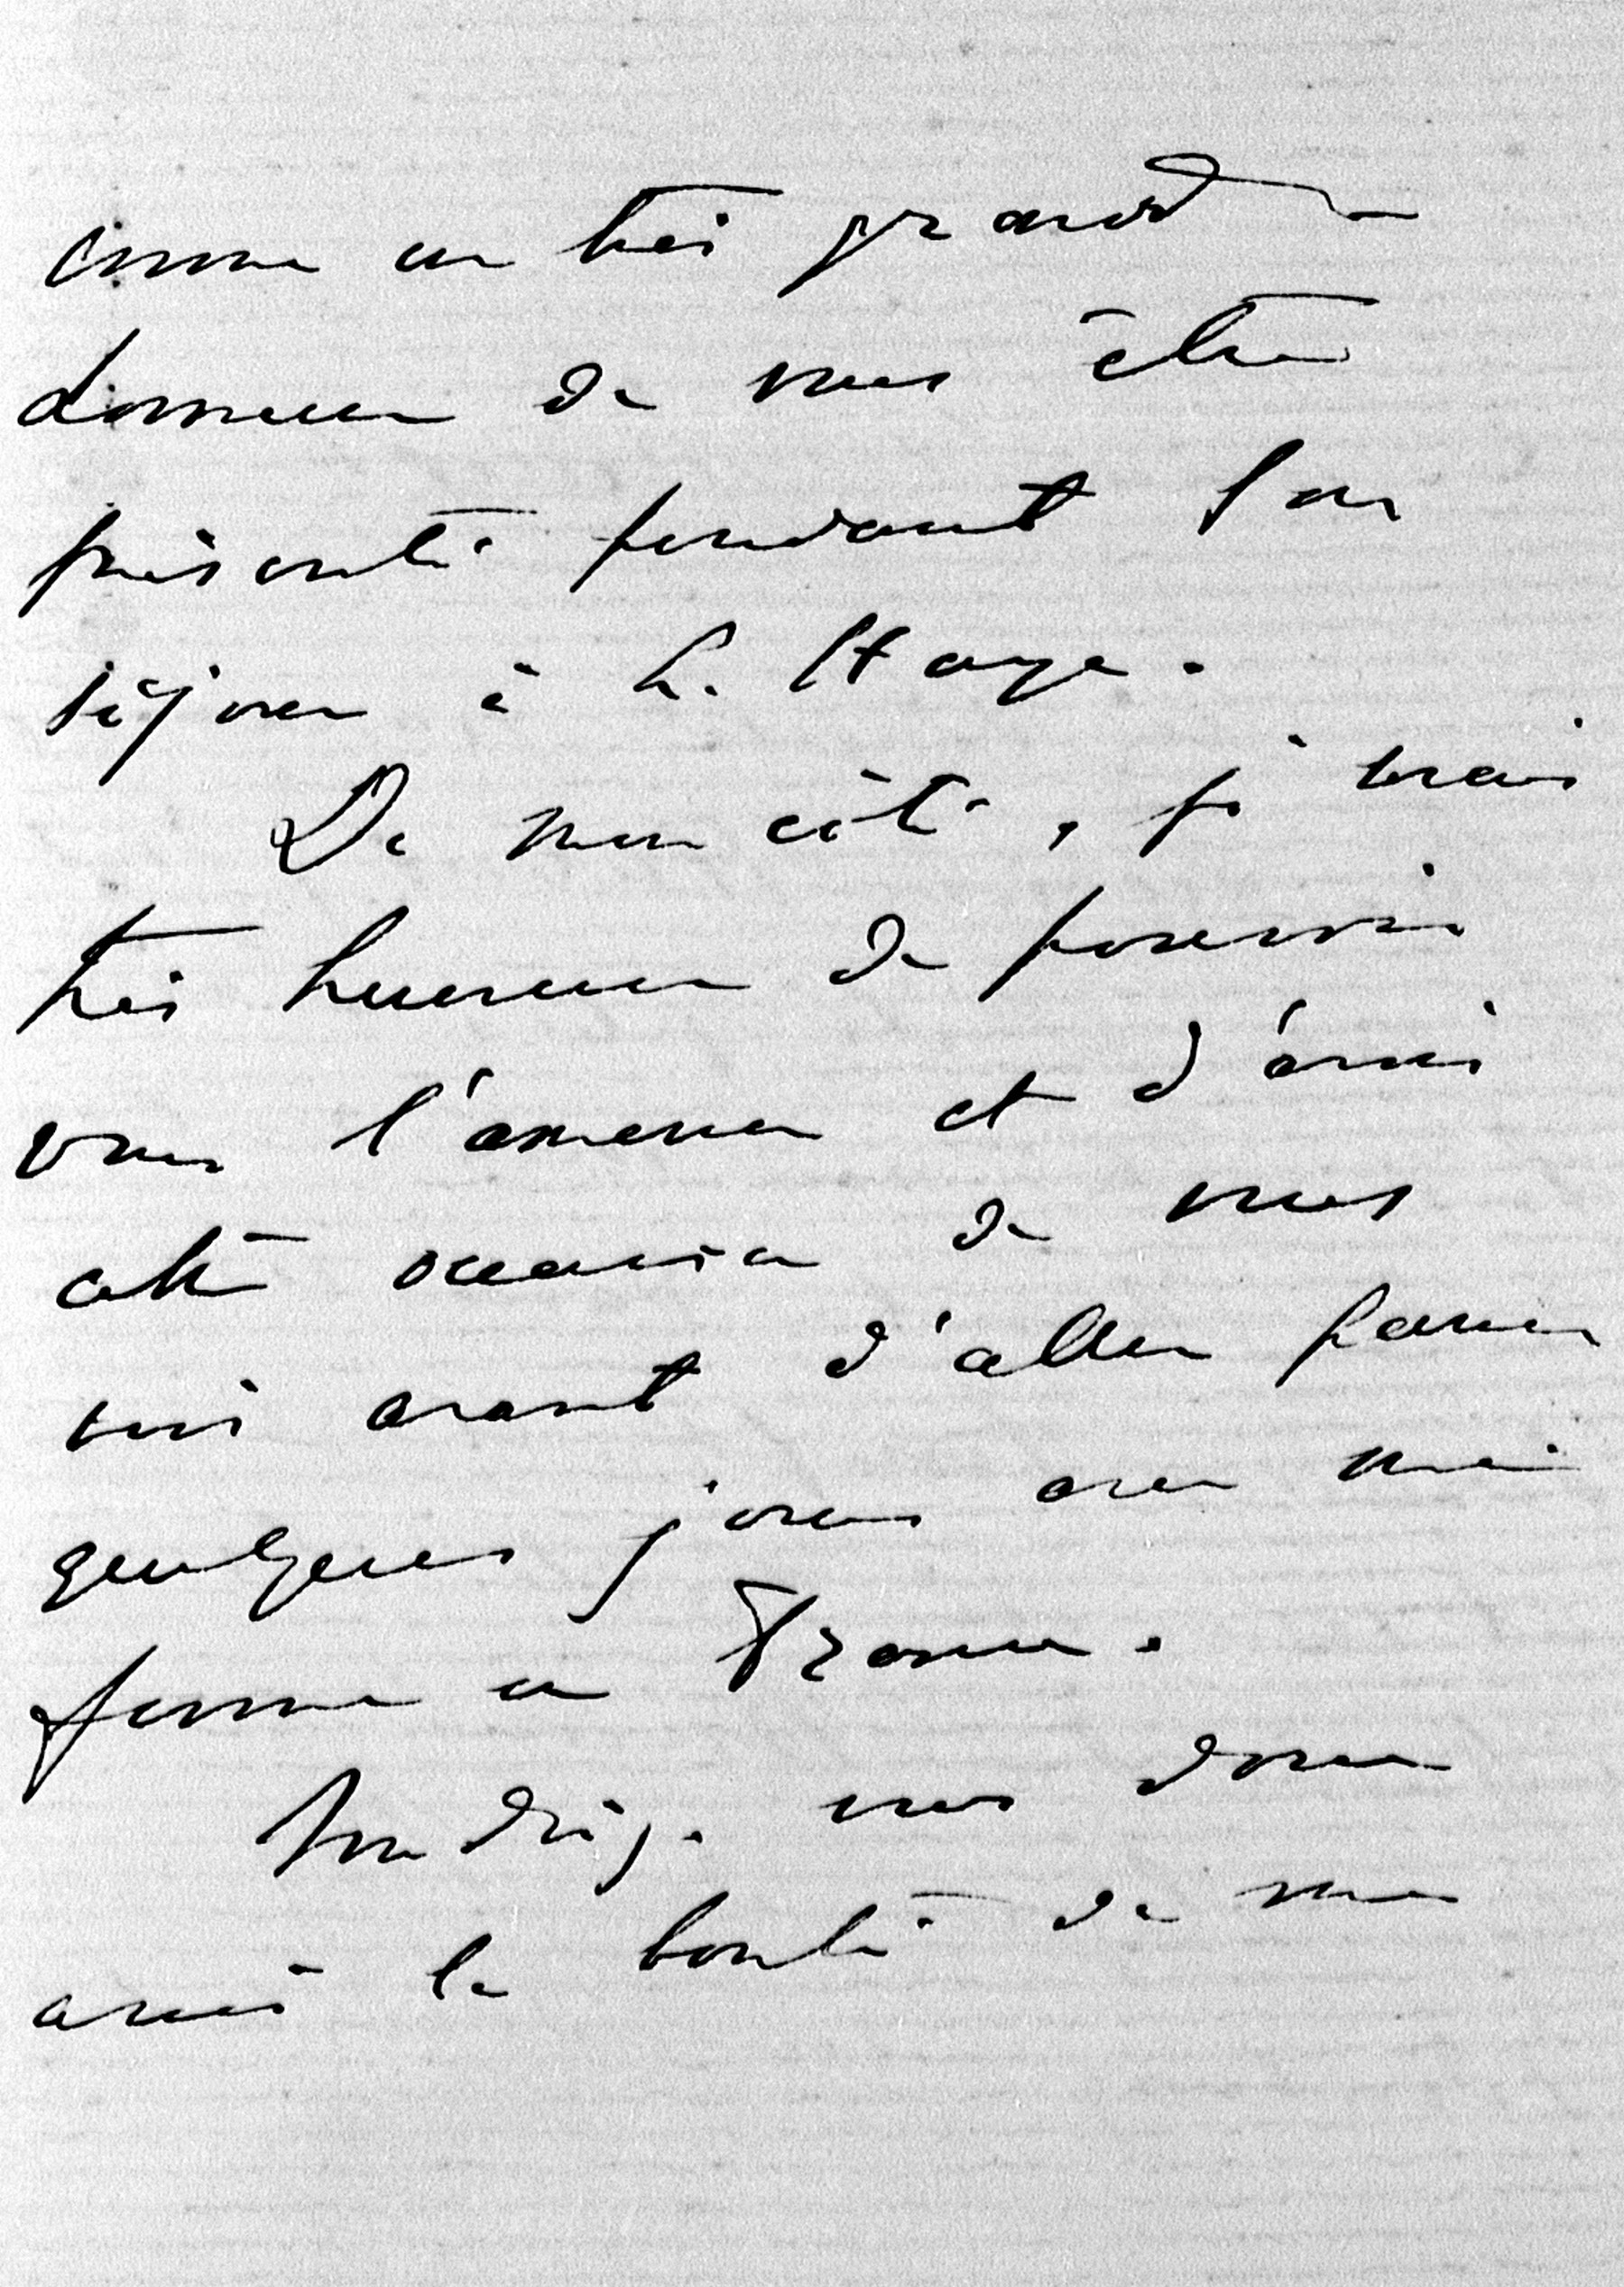 comme un très grand
honneur de vous être
présenté pendant son
séjour à La Haye.
De mon côté, je serais
très heureux de pouvoir
vous l'amener et d'avoir
cette occasion de vous
voir avant d'aller passer
quelques jours avec ma
femme en France.
Voudriez vous donc
avoir la bonté de me